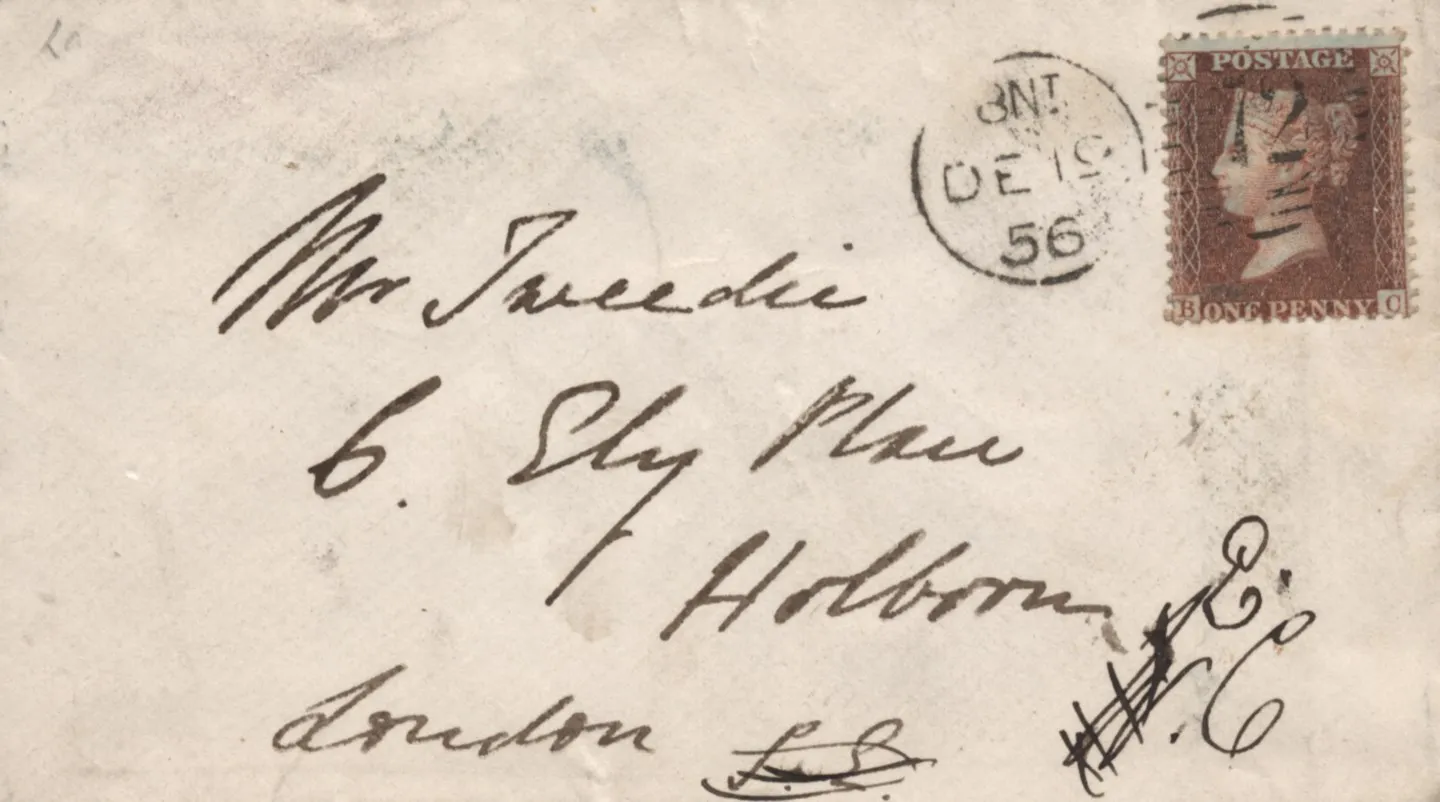 POSTAGE
BNT
12
DE 19
56
B ONE PENNY C
Mr Tweedie
6. Ely Place
Holborn
E.
London
.C